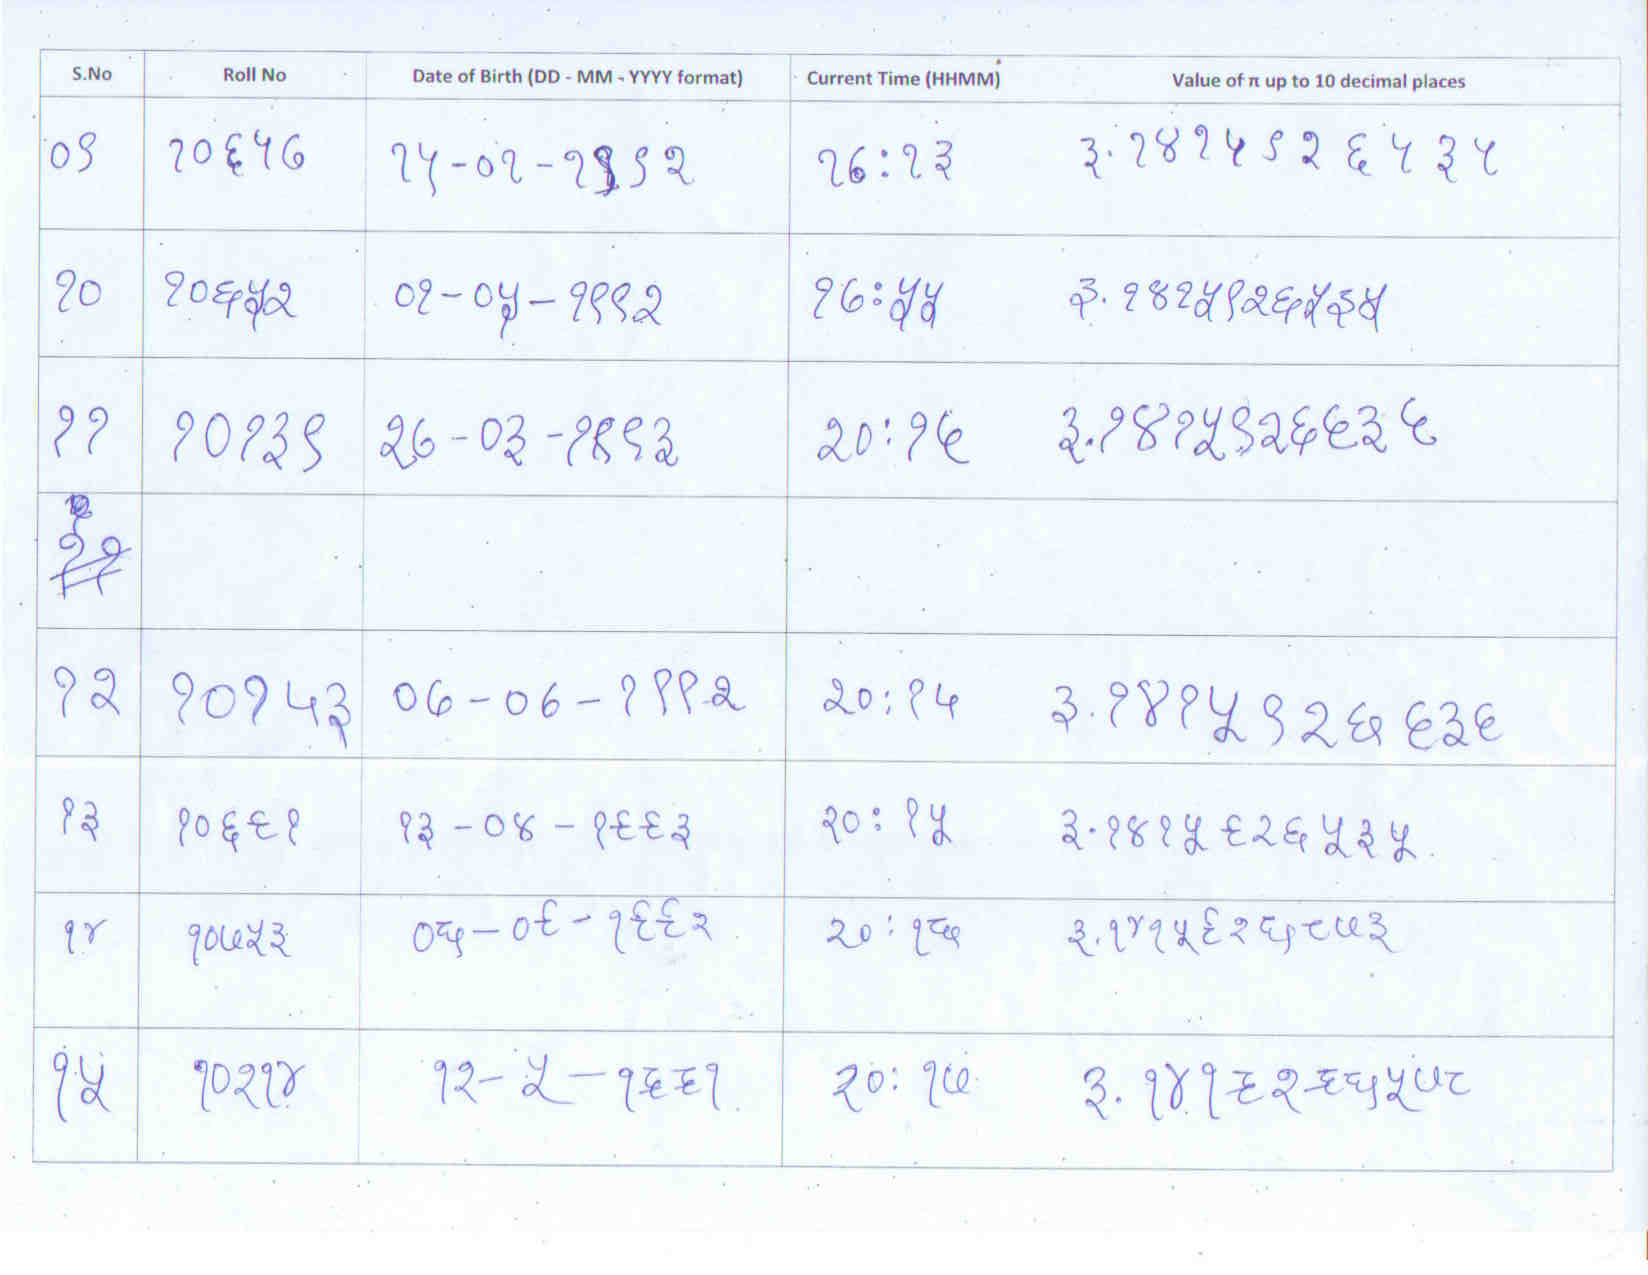 S.No Roll No Date of Birth (DD - MM - YYYY format) Current Time (HHMM) Value of π up to 10 decimal places
०९ १०६५७ १५-०१-१९९२ १७:१३ ३.१४१५९२६५३५
१० १०६५२ ०१-०५-१९९२ १७:५५ ३.१४१५९२६५३५
११ १०१३९ २७-०३-१९९३ २०:१६ ३.१४१५९२६६३६
१२ १०१५३ ०७-०७-१९९२ २०:१५ ३.१४१५९२६६३६
१३ १०६६१ १३-०४-१९९३ २०:१५ ३.१४१५९२६५३५
१४ १०७५३ ०६-०९-१९९२ २०:१६ ३.१४१५९२६८७३
१५ १०२१४ १२-५-१९९१ २०:१७ ३.१४१९२९६५७८